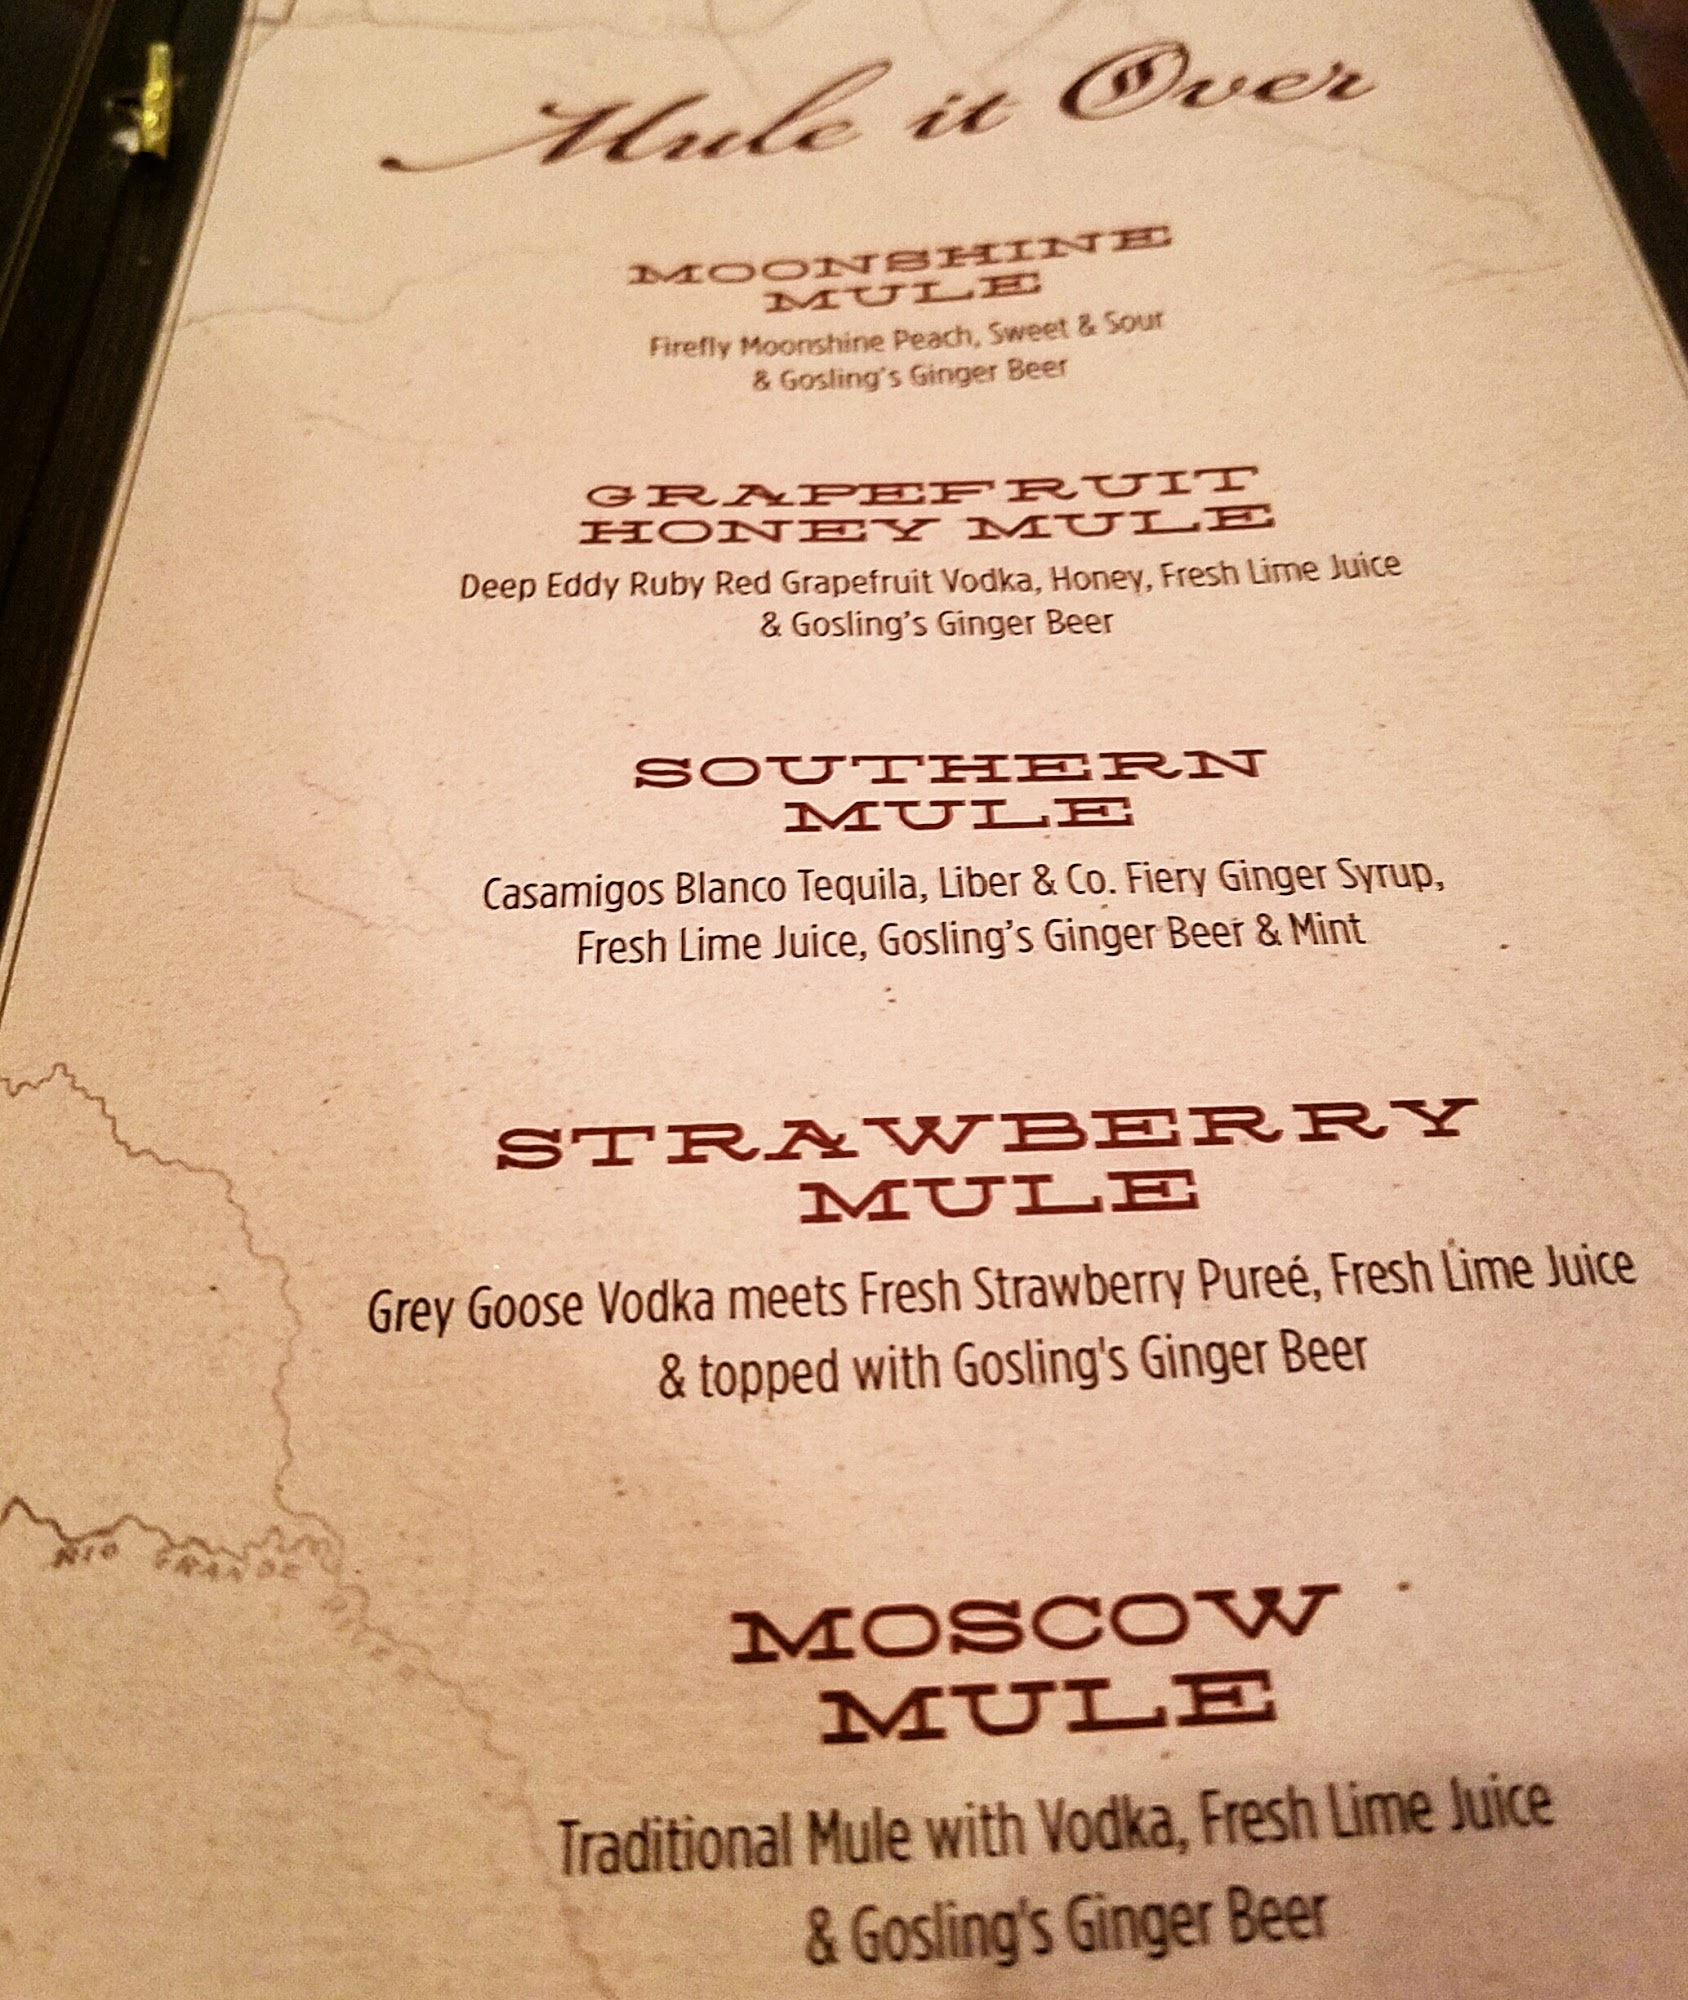 Mule it Over
MOONSHINE
MULE
Firefly Moonshine Peach, Sweet & Sour
& Gosling's Ginger Beer
GRAPEFRUIT
HONEY MULE
Deep Eddy Ruby Red Grapefruit Vodka, Honey, Fresh Lime Juice
& Gosling's Ginger Beer
SOUTHERN
MULE
Casamigos Blanco Tequila, Liber & Co. Fiery Ginger Syrup,
Fresh Lime Juice, Gosling's Ginger Beer & Mint
STRAWBERRY
MULE
Grey Goose Vodka meets Fresh Strawberry Pureé, Fresh Lime Juice
& topped with Gosling's Ginger Beer
RIO GRANDE
RIVER
MOSCOW
MULE
Traditional Mule with Vodka, Fresh Lime Juice
& Gosling's Ginger Beer